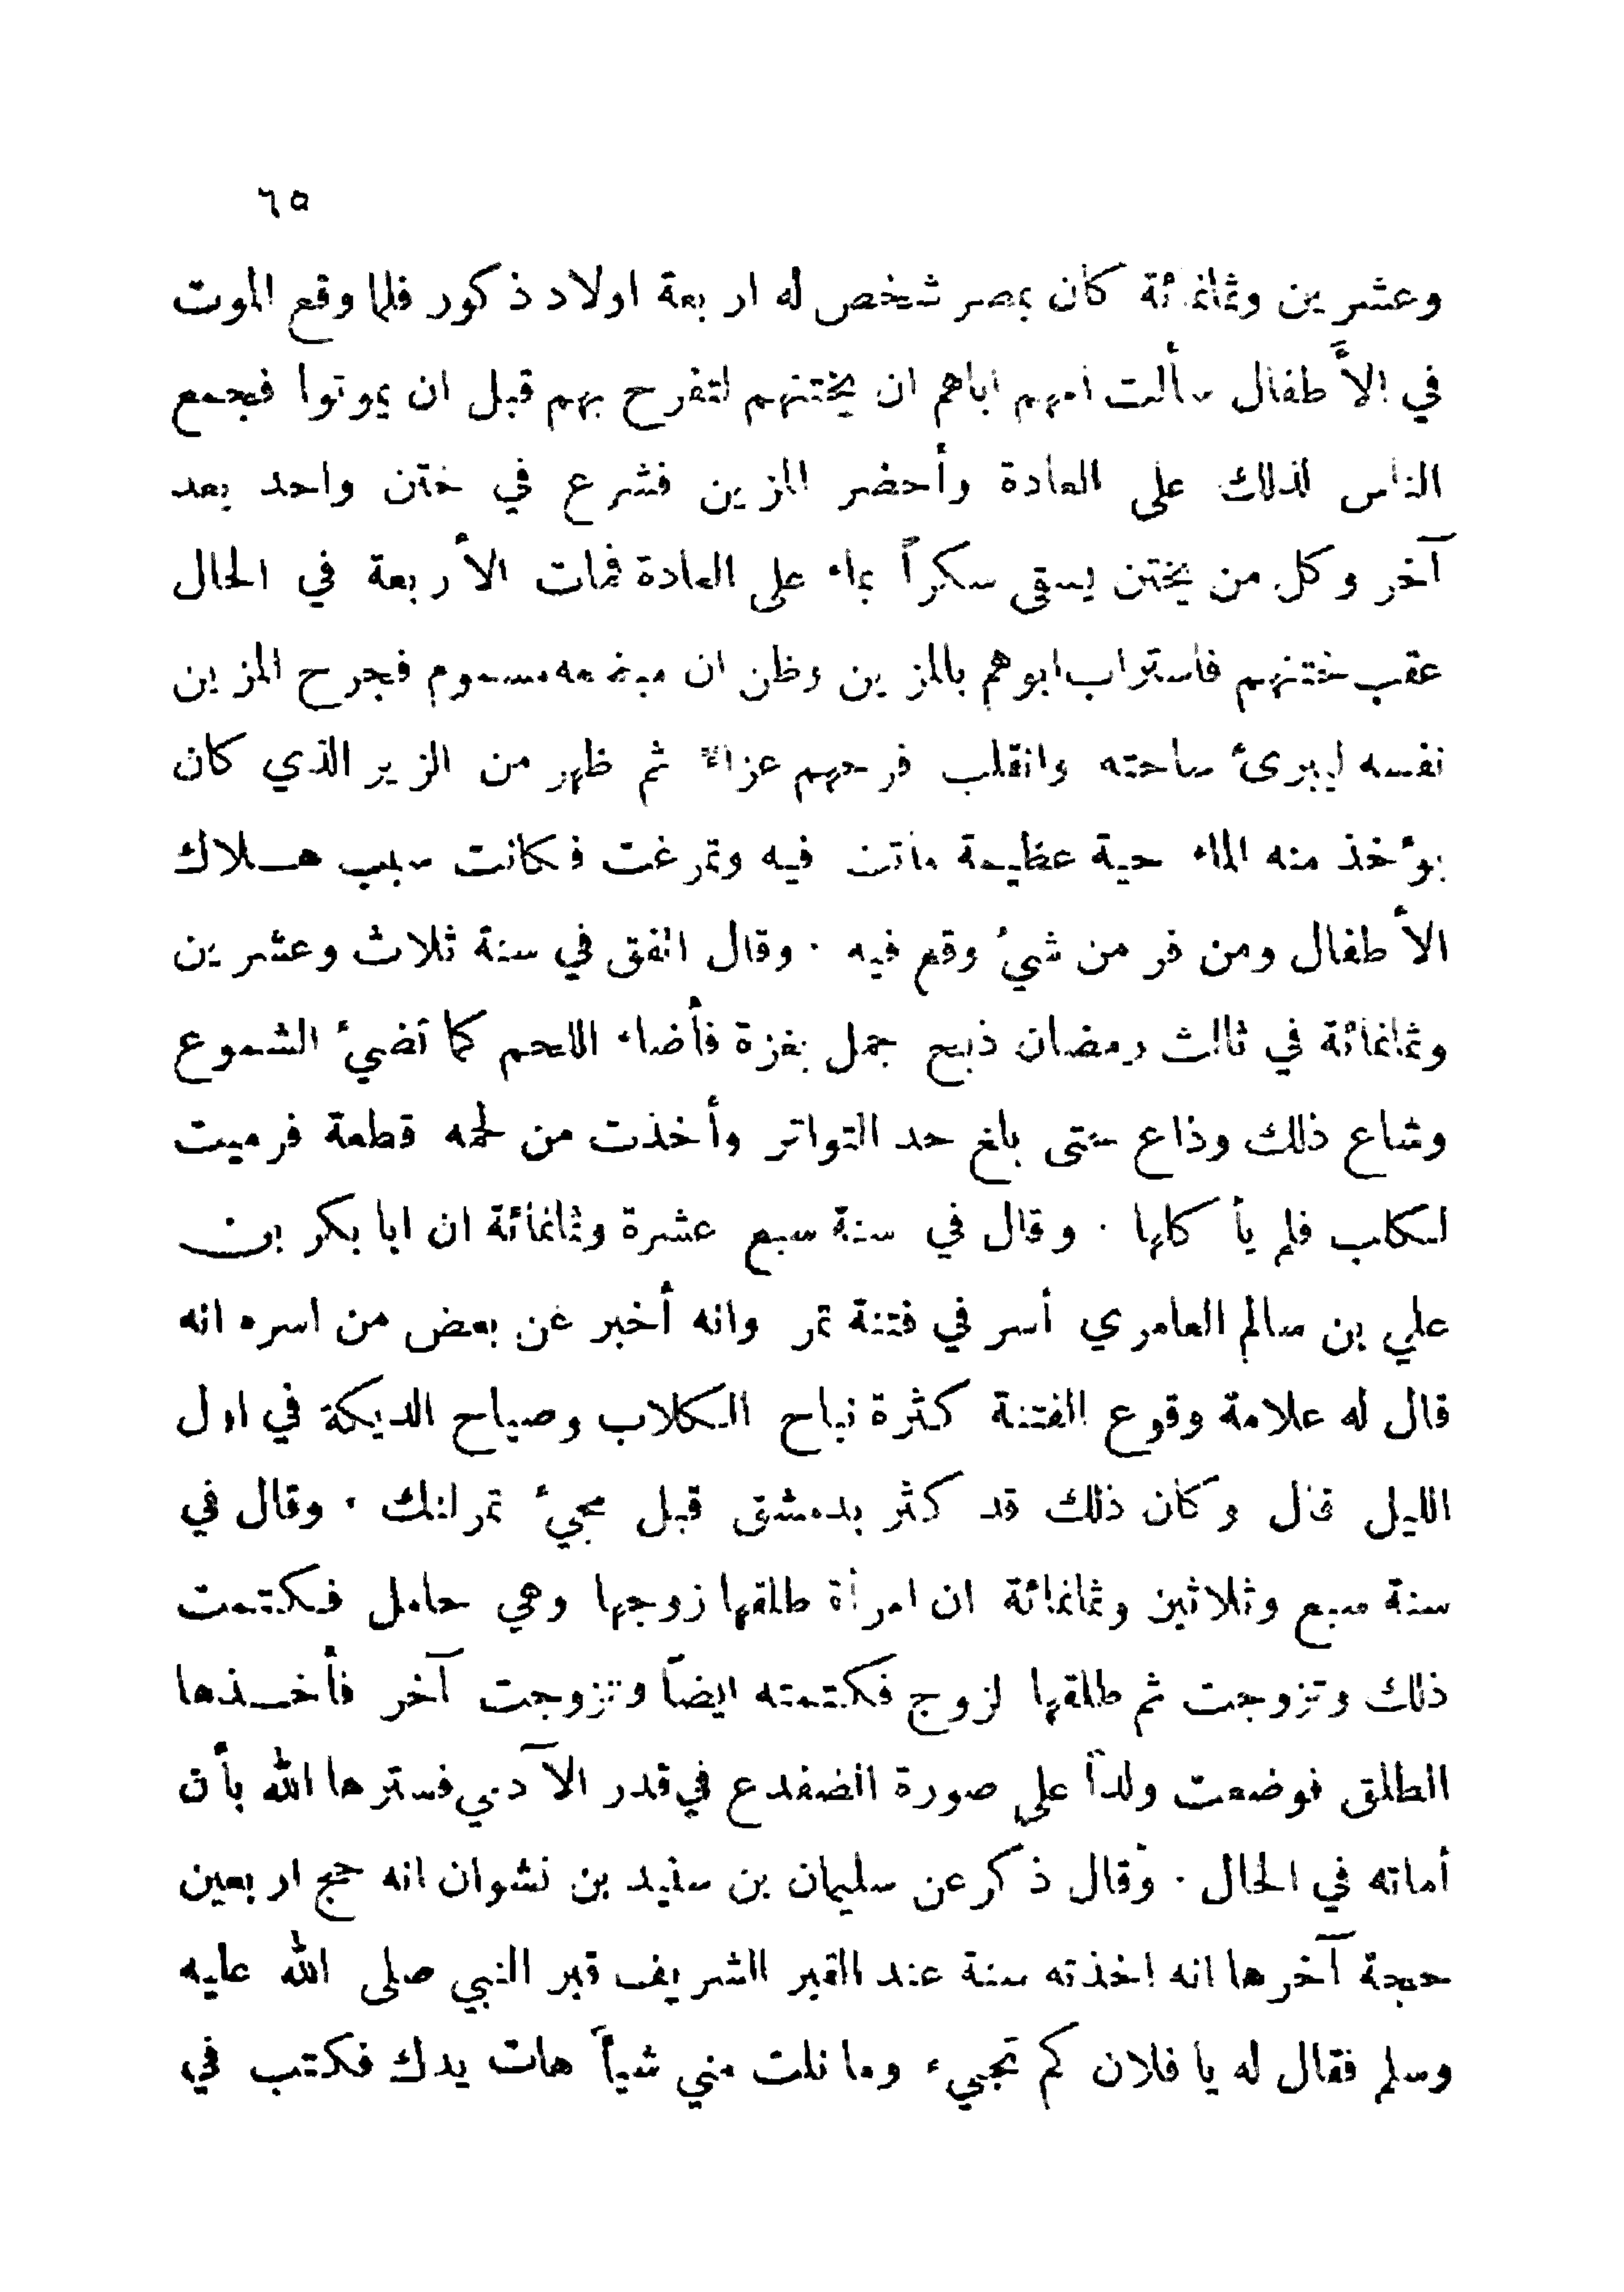 ٦٥
وعشرين وثمانمائة كان بمصر شخص له اربعة اولاد ذكور فلما وقع الموت
في الأطفال سألت امهم اباهم ان يختنهم لتفرح بهم قبل ان يموتوا فجمع
الناس لذلك على العادة وأحضر المزين فشرع في ختن واحد بعد
آخر وكل من يختن يسقى سكراً بماء على العادة فمات الأربعة في الحال
عقب ختنهم فاستراب ابوهم بالمزين وظن ان مبضعه مسموم فجرح المزين
نفسه ليبرئ ساحته وانقلب فرحهم عزاءً ثم ظهر من الزير الذي كان
يؤخذ منه الماء حية عظيمة ماتت فيه وتمرغت فكانت سبب هلاك
الأطفال ومن فر من شيء وقع فيه . وقال اتفق في سنة ثلاث وعشرين
وثمانمائة في ثالث رمضان ذبح جمل بغزة فأضاء اللحم كما تضيء الشموع
وشاع ذلك وذاع حتى بلغ حد التواتر وأخذت من لحمه قطعة فرميت
لكلب فلم يأكلها . وقال في سنة سبع عشرة وثمانمائة ان ابا بكر بن
علي بن سالم العامري أسر في فتنة تمر وانه أخبر عن بعض من اسره انه
قال له علامة وقوع الفتنة كثرة نباح الكلاب وصياح الديكة في اول
الليل قال وكان ذلك قد كثر بدمشق قبل مجيء تمرلنك . وقال في
سنة سبع وثلاثين وثمانمائة ان امرأة طلقها زوجها وهي حامل فكتمت
ذلك وتزوجت ثم طلقها لزوج فكتمته ايضاً وتزوجت آخر فأخذها
الطلق فوضعت ولداً على صورة الضفدع في قدر الآدمي فسترها الله بأن
أماته في الحال . وقال ذكر عن سليمان بن سنيد بن نشوان انه حج اربعين
حجة آخرها انه اخذته سنة عند القبر الشريف قبر النبي صلى الله عليه
وسلم فقال له يا فلان كم تجيء وما نلت مني شيأً هات يدك فكتب في